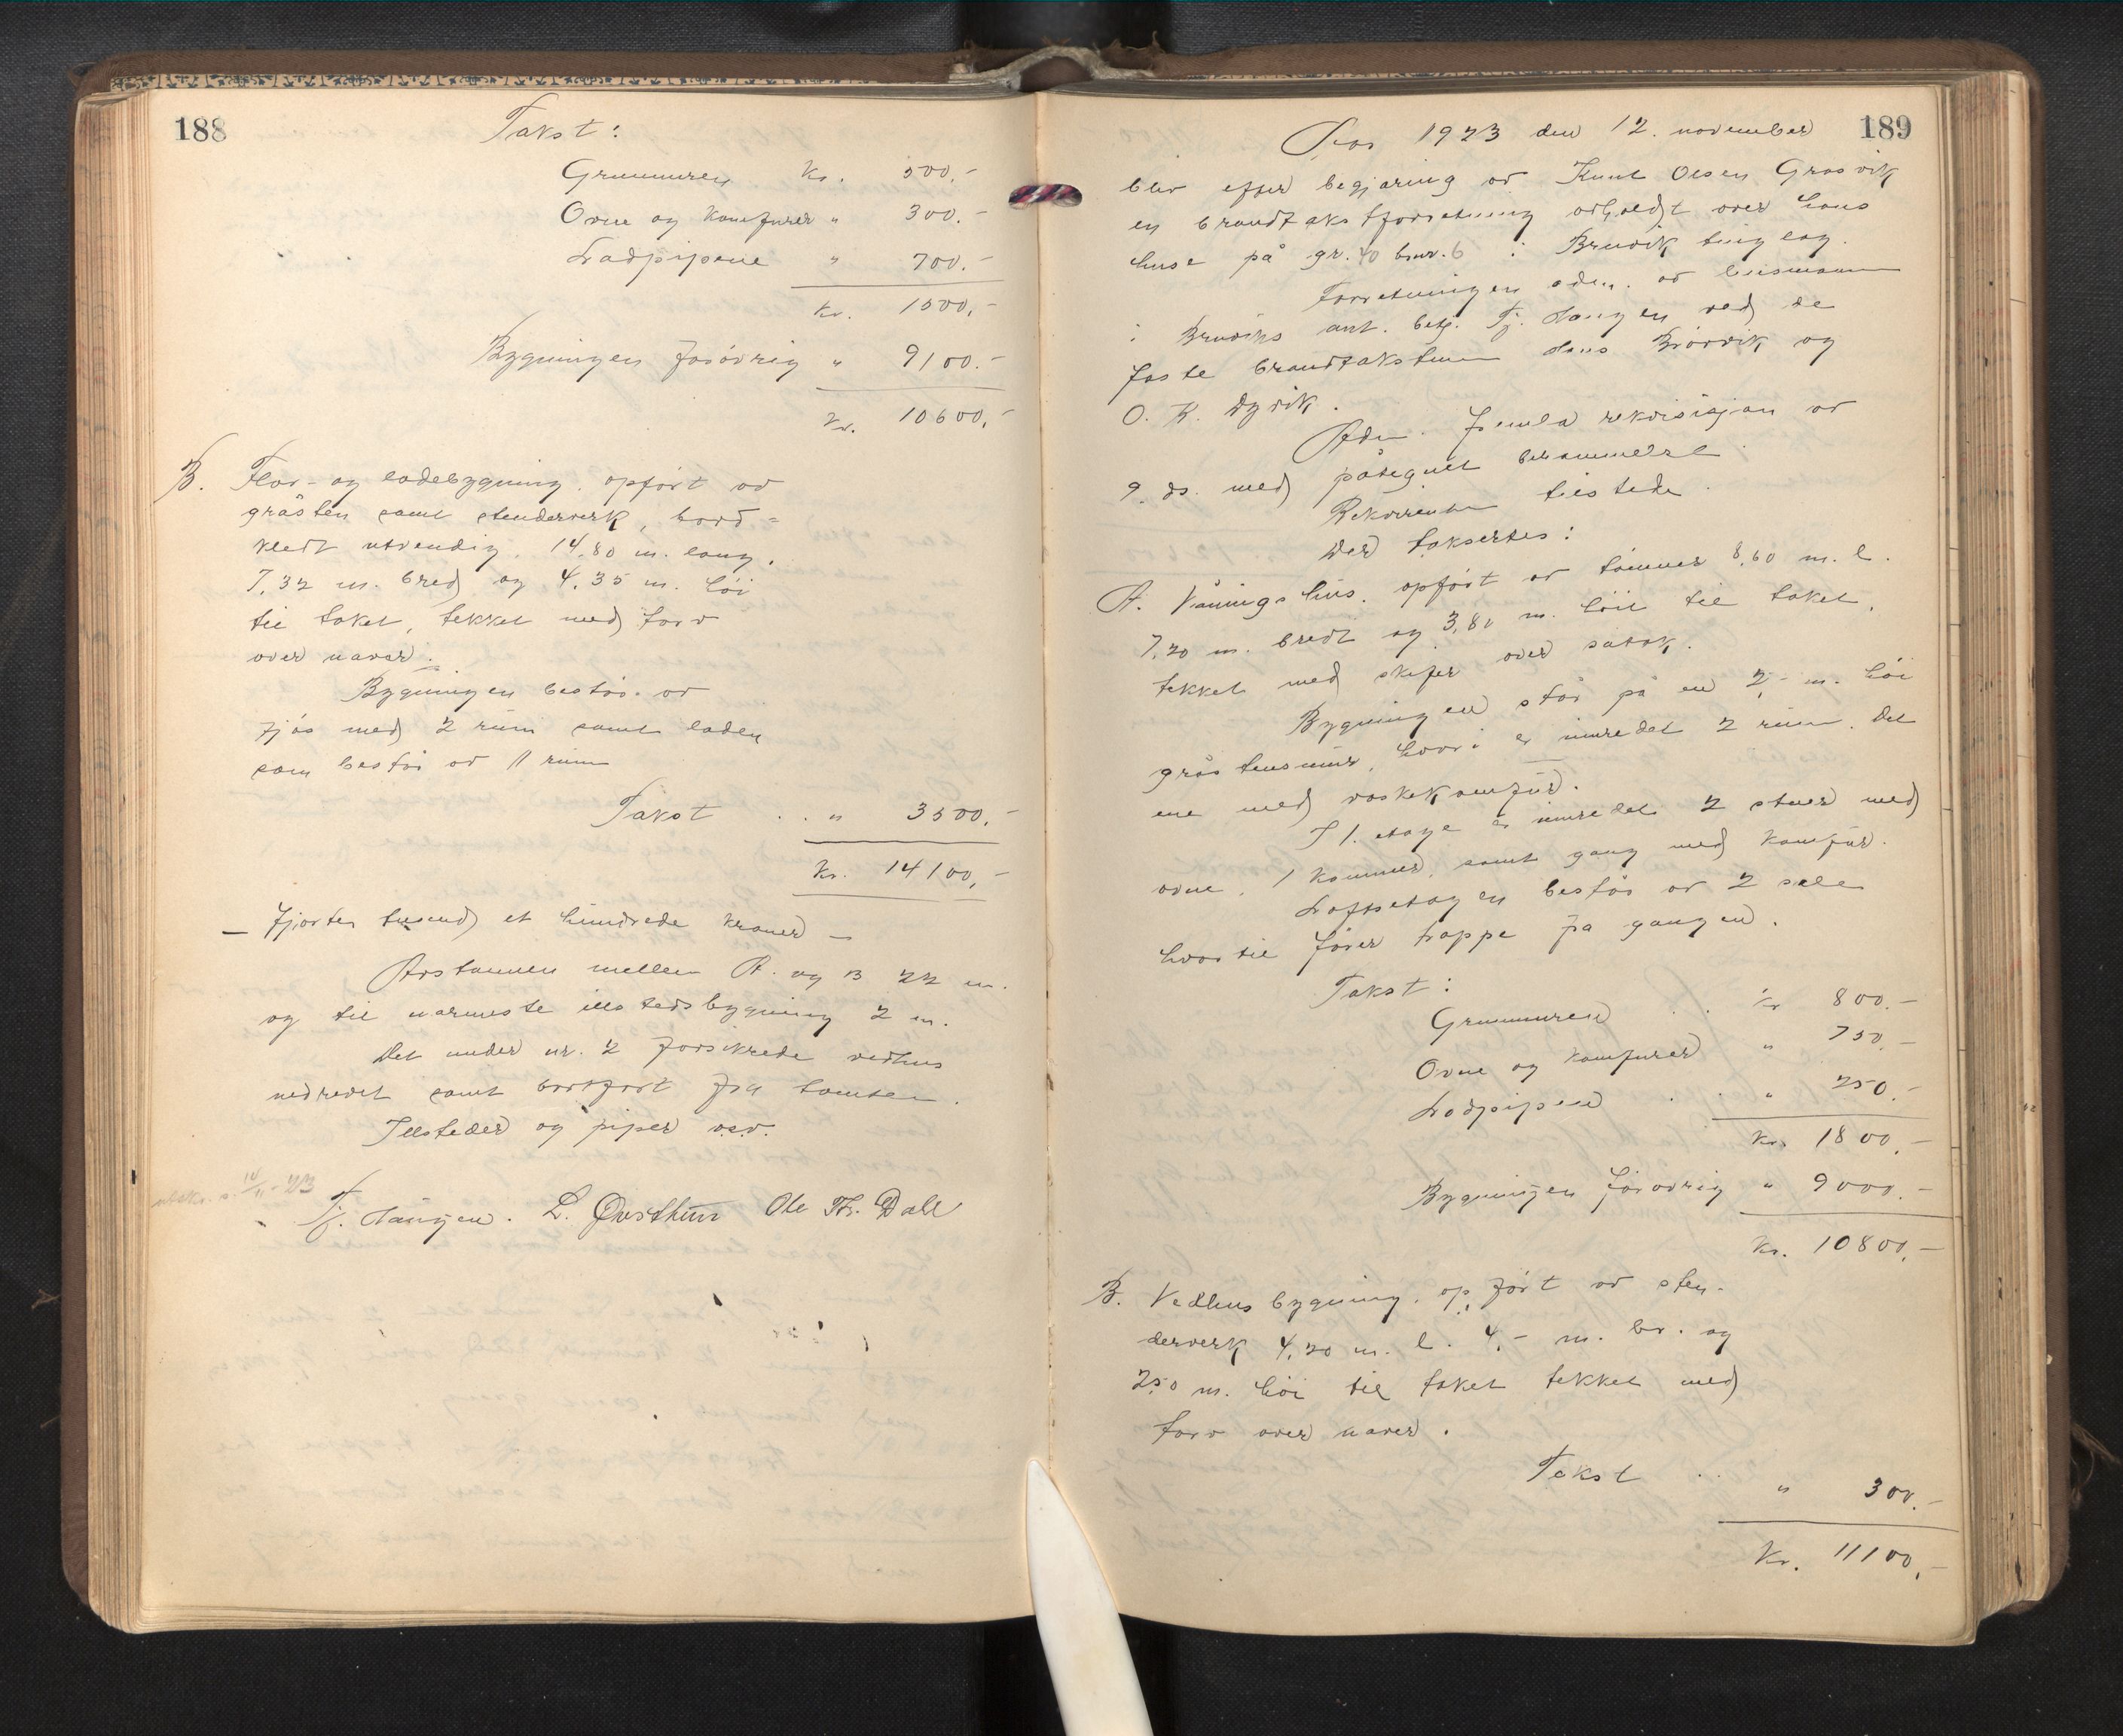 188
Takst:
Grunmuren Kr. 500.-
Ovne og komfurer " 300.-
Ladpipene " 700.-
Kr. 1500,-
Bygningen forøvrig " 9100.-
Kr. 10600,-
B. Flor- og ladebygning. opført av
gråsten samt stenderverk, bord-
kledt utvendig. 14,80 m. lang,
7,32 m. bred og 4,35 m. höi
til taket, tekket med torv
over naver.
Bygningen består av
fjös med 2 rum samt laden
som består av 11 rum
Takst . . " 3500.-
Kr. 14100,-
- Fjorten tusend et hundrede kroner -
Avstannen mellem A. og B 22 m.
og til nærmeste illstedsbygning 2 m.
Det under nr. 2 forsikrede vedhus
nedrevet samt bortført fra tomten.
Illsteder og piper o.s.v.
utskr. s. 14/11-23
Tj. Haugen. L. Øvsthun Ole Th. Dale
189
Aar 1923 den 12. november
blev efter begjæring av Knut Olsen Grasvik
en brandtakstforretning avholdt over hans
huse på gr. 40 bnr. 6 i Bruvik tinglag.
Forretningen adm. av lensmann
i Bruviks ant. betj. Tj. Haugen ved de
faste brandtakstmenn Hans Brørvik og
O. K. Dyvik.
Adm. fremla rekvisisjon av
9. ds. med påtegnet berammelse.
Rekvirenten tilstede.
Der taksertes:
A. Våningshus. opført av tömmer 8,60 m. l.
7,20 m. bredt og 3,80 m. höit til taket,
tekket med skifer over sutak.
Bygningen står på en 2,- m. höi
gråstensmur, hvori er innredet 2 rum. Det
ene med vaskekomfur.
I 1. etage er innredet 2 stuer med
ovne, 1 kammer, samt gang med komfur.
Loftsetagen består av 2 sale
hvortil förer trappe fra gangen.
Takst:
Grunmuren . . Kr 800.-
Ovne og komfurer " 750.-
Ladpipen . . " 250.-
Kr. 1800,-
Bygningen forøvrig " 9000.-
Kr. 10800,-
B. Vedhusbygning. opført av sten-
derverk 4,20 m. l. 4,- m. br. og
2,50 m. höi til taket tekket med
torv over naver.
Takst . . " 300.-
Kr. 11100,-